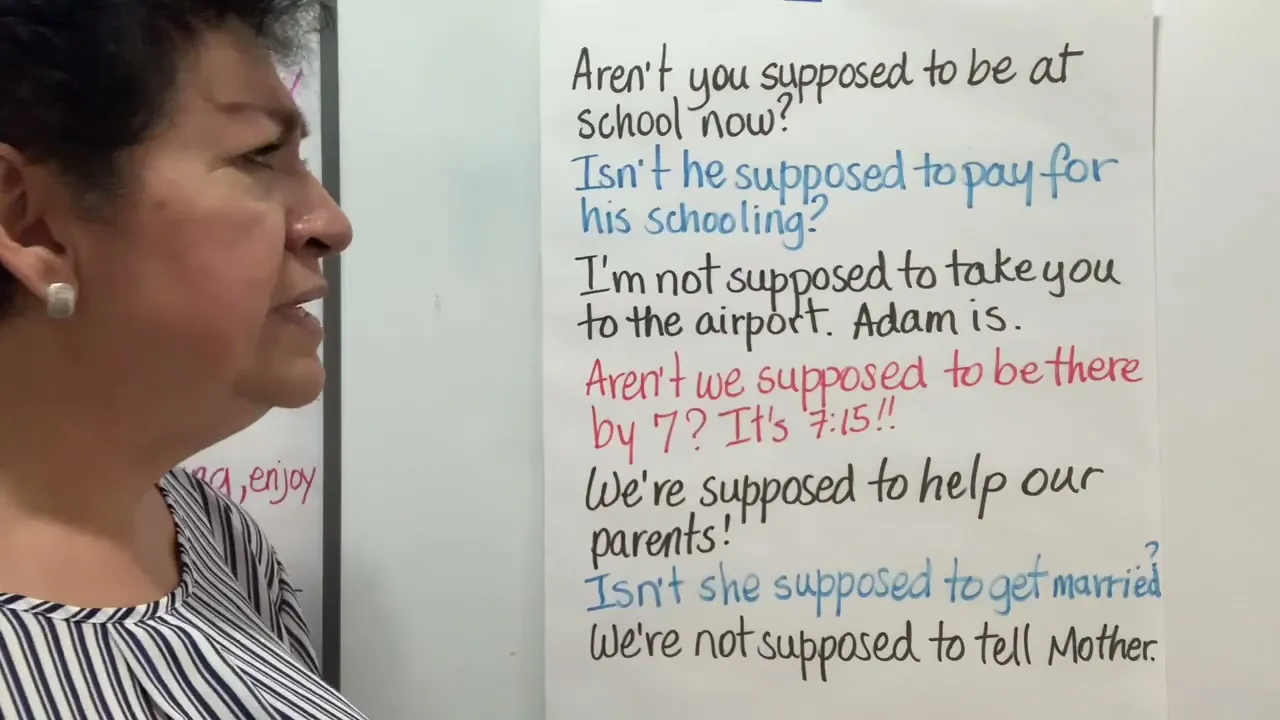 Aren't you supposed to be at
school now?
Isn't he supposed to pay for
his schooling?
I'm not supposed to take you
to the airport. Adam is.
Aren't we supposed to be there
by 7? It's 7:15!!
We're supposed to help our
parents!
Isn't she supposed to get married?
We're not supposed to tell Mother.
, enjoy